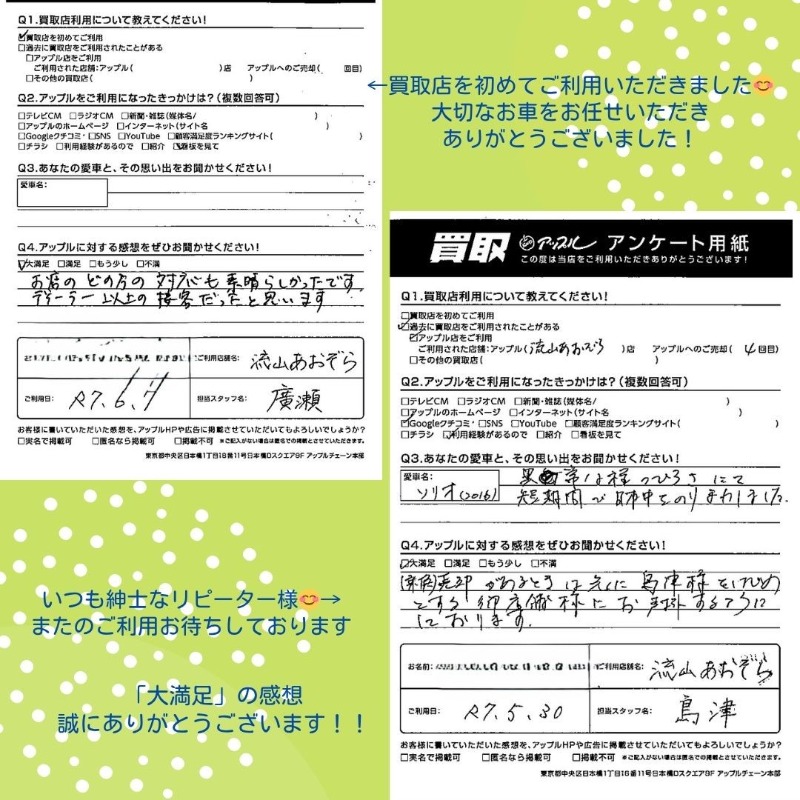 Q1.買取店利用について教えてください!
☑買取店を初めてご利用
□過去に買取店をご利用されたことがある
□アップル店をご利用
ご利用された店舗:アップル( )店 アップルへのご売却( 回目)
□その他の買取店( )
Q2.アップルをご利用になったきっかけは?(複数回答可)
□テレビCM □ラジオCM □新聞・雑誌(媒体名/ )
□アップルのホームページ □インターネット(サイト名 )
□Googleクチコミ □SNS □YouTube □顧客満足度ランキングサイト( )
□チラシ □利用経験があるので □紹介 ☑看板を見て
Q3.あなたの愛車と、その思い出をお聞かせください!
愛車名:
Q4.アップルに対する感想をぜひお聞かせください!
☑大満足 □満足 □もう少し □不満
お店のどの方の対応も素晴らしかったです
ディーラー以上の接客だったと思います
ご利用店舗名: 流山あおぞら
ご利用日: R7.6.7 担当スタッフ名: 廣瀬
お客様に書いていただいた感想を、アップルHPや広告に掲載させていただいてもよろしいでしょうか?
□実名で掲載可 □匿名なら掲載可 □掲載不可 ※ご記入がない場合は匿名での掲載とさせていただきます。
東京都中央区日本橋1丁目16番11号日本橋Dスクエア9F アップルチェーン本部
←買取店を初めてご利用いただきました😊
大切なお車をお任せいただき
ありがとうございました!
買取 アップル アンケート用紙
この度は当店をご利用いただきありがとうございます!
Q1.買取店利用について教えてください!
□買取店を初めてご利用
☑過去に買取店をご利用されたことがある
☑アップル店をご利用
ご利用された店舗:アップル(流山あおぞら)店 アップルへのご売却(4回目)
□その他の買取店( )
Q2.アップルをご利用になったきっかけは?(複数回答可)
□テレビCM □ラジオCM □新聞・雑誌(媒体名/ )
☑アップルのホームページ □インターネット(サイト名 )
☑Googleクチコミ □SNS □YouTube □顧客満足度ランキングサイト( )
□チラシ ☑利用経験があるので □紹介 □看板を見て
Q3.あなたの愛車と、その思い出をお聞かせください!
愛車名: ソリオ(2016)
短期間で
Q4.アップルに対する感想をぜひお聞かせください!
☑大満足 □満足 □もう少し □不満
売却があるときは 島津様をはじめ
とする御店舗様にお
ております。
お名前: ご利用店舗名: 流山あおぞら
ご利用日: R7.5.30 担当スタッフ名: 島津
お客様に書いていただいた感想を、アップルHPや広告に掲載させていただいてもよろしいでしょうか?
□実名で掲載可 □匿名なら掲載可 □掲載不可 ※ご記入がない場合は匿名での掲載とさせていただきます。
東京都中央区日本橋1丁目16番11号日本橋Dスクエア9F アップルチェーン本部
いつも紳士なリピーター様😊→
またのご利用お待ちしております
「大満足」の感想
誠にありがとうございます!!